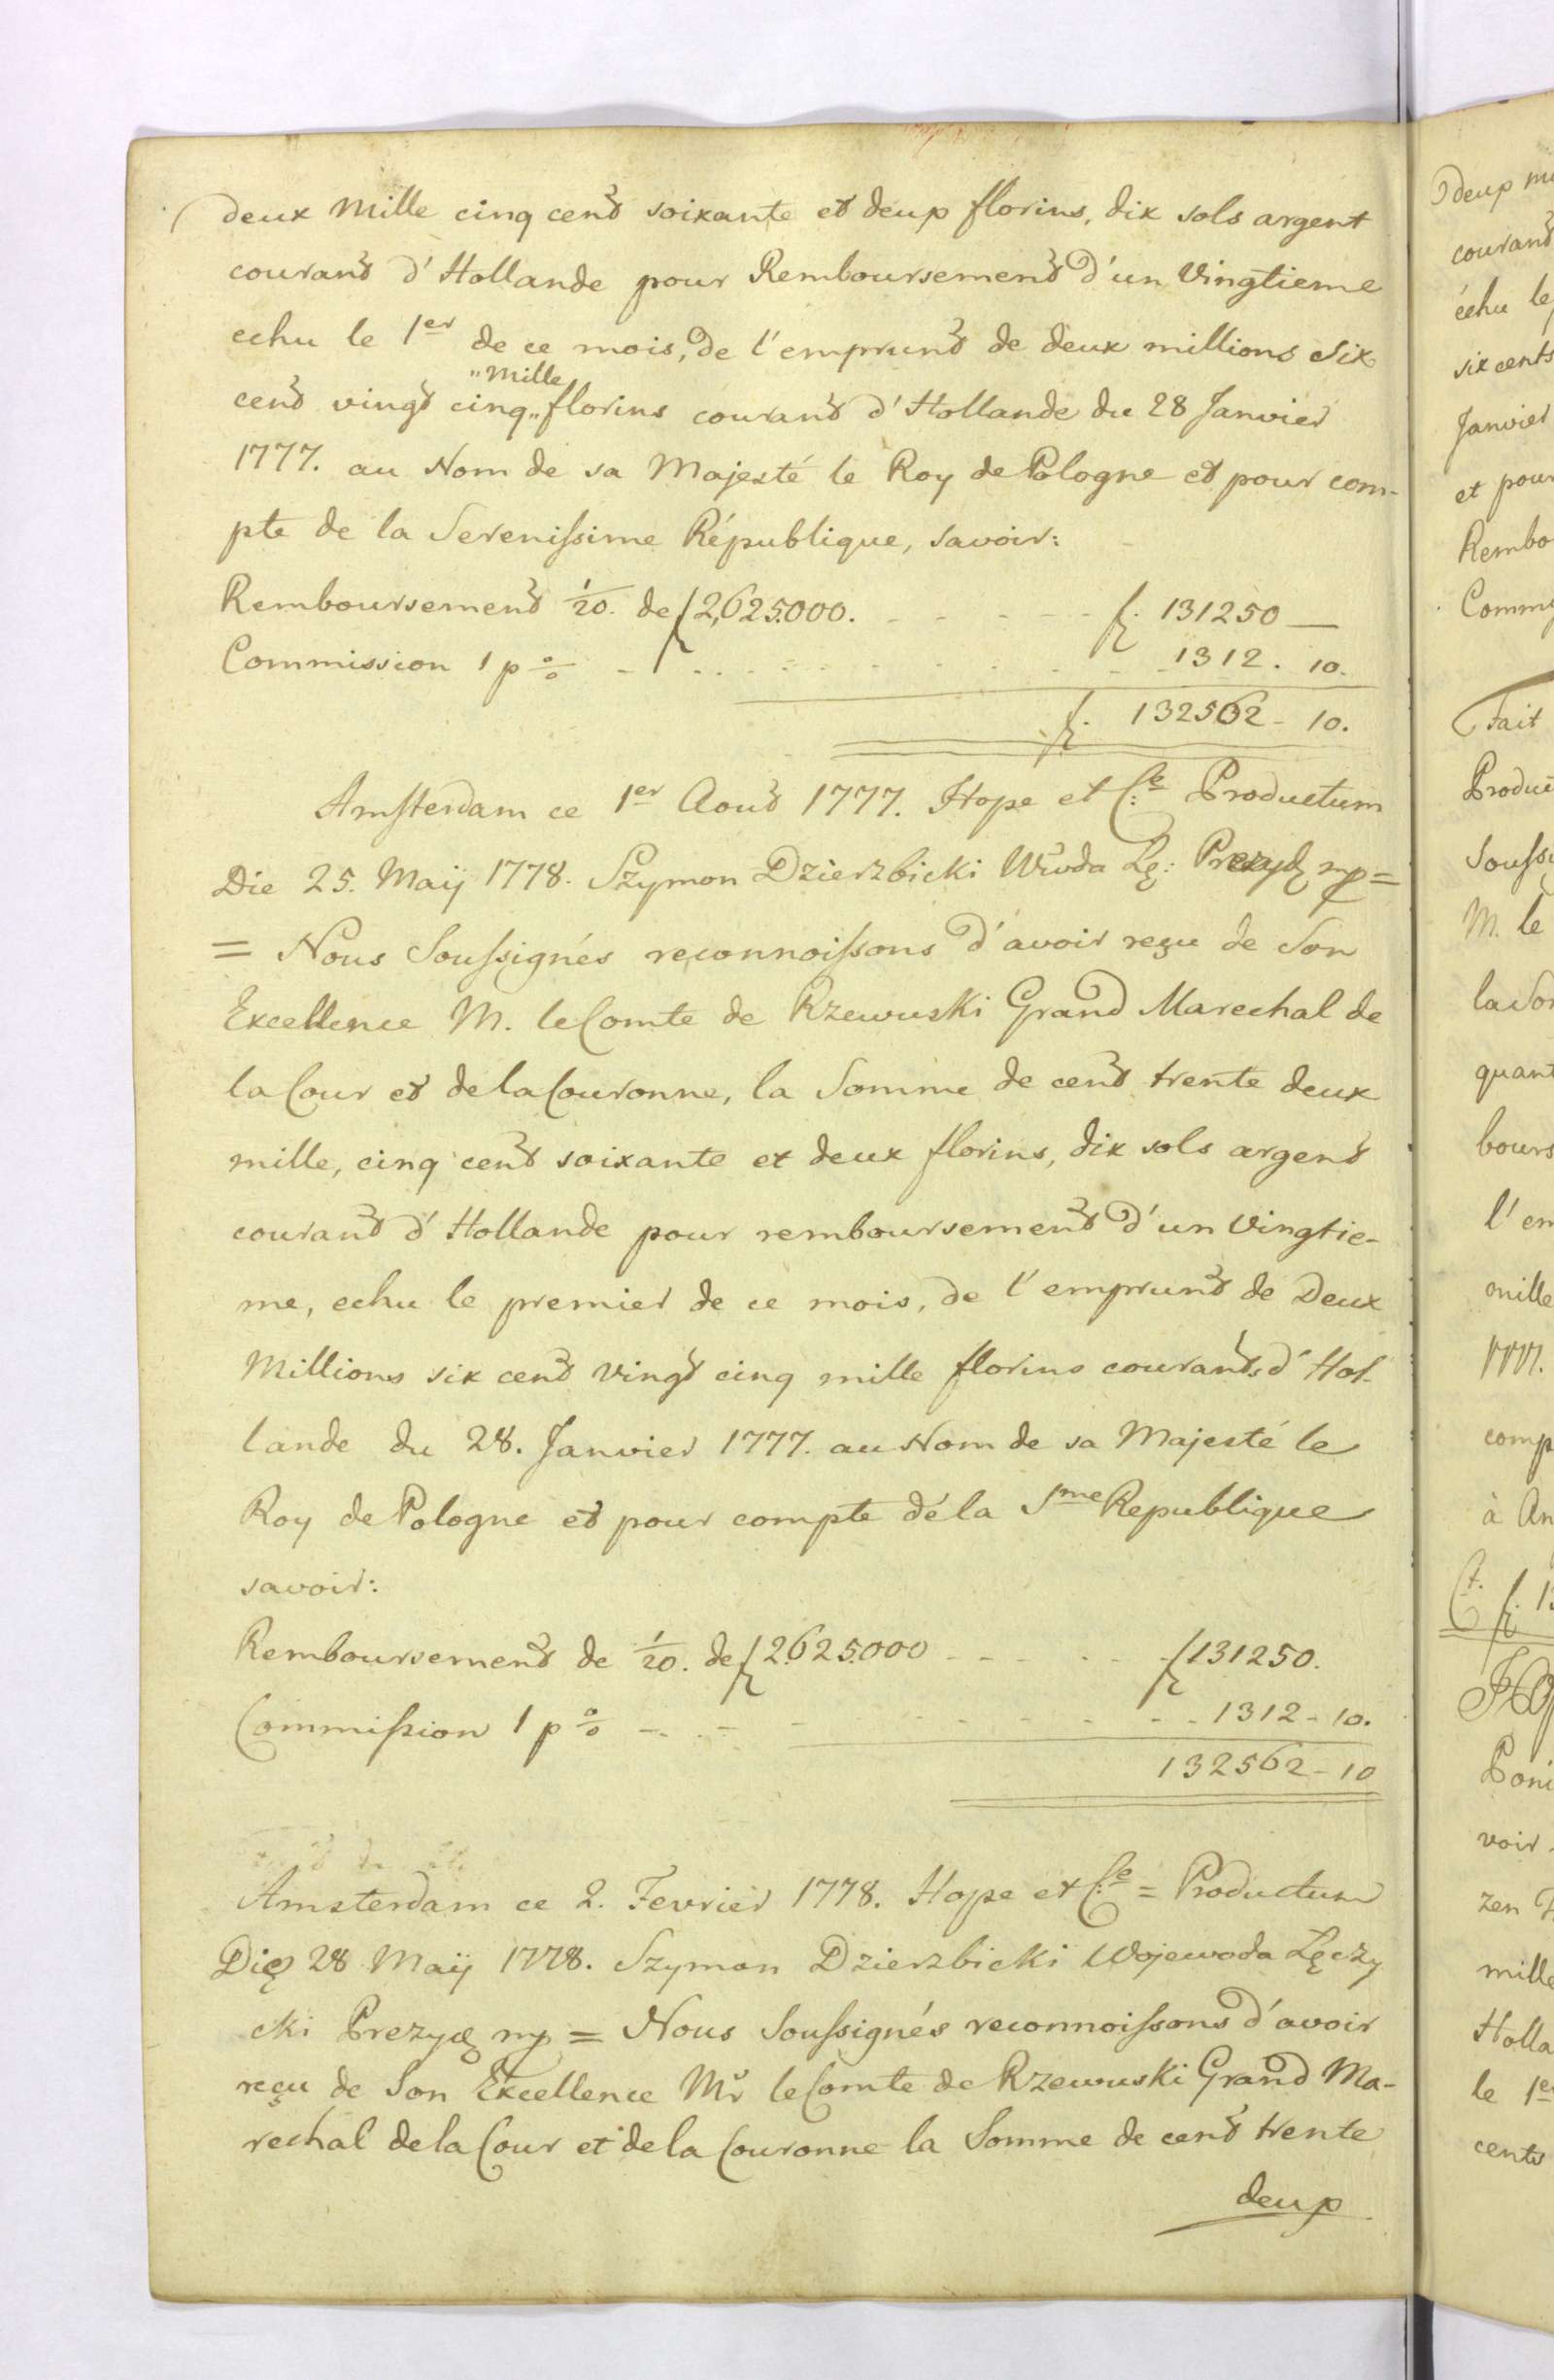 deux Mille cinq cent soixante et deux florins, dix sols argent
courant d'Hollande pour Remboursement d'un Vingtieme
echu le 1er de ce mois, de l'emprunt de deux millions Six
"Mille
cent vingt cinq" florins courant d'Hollande du 28 Janvier
1777. au Nom de sa Majesté le Roy de Pologne et pour com-
pte de la Serenissime République, savoir:
Remboursement 1/20. de f 2,625.000. - - - - - f. 131250 —
Commission 1 p % - - - - - - - 1312. 10.
f. 132562 - 10.
Amsterdam ce 1er Aout 1777. Hope et C:e Productum
Die 25. Maij 1778. Szymon Dzierzbicki Wwda Lę: Prezyd mp =
= Nous Soussignés reconnoissons d'avoir reçu de Son
Excellence M. le Comte de Rzewuski Grand Marechal de
la Cour et de la Couronne, la Somme de cent trente deux
mille, cinq cent soixante et deux florins, dix sols argent
courant d'Hollande pour remboursement d'un Vingtie-
me, echu le premier de ce mois, de l'emprunt de Deux
Millions six cent Vingt cinq mille florins courants d'Hol-
lande du 28. Janvier 1777. au Nom de sa Majesté le
Roy de Pologne et pour compte dé la Sme Republique
savoir:
Remboursement de 1/20. de f 2.625.000 - - - - - f 131250.
Commission 1 p % - - - - - - - 1312 - 10.
132562 - 10
Amsterdam ce 2. Fevrier 1778. Hope et C:e = Productum
Die 28 Maij 1778. Szymon Dzierzbicki Wojewoda Lęczy
cki Prezyd mp = Nous Soussignés reconnoissons d'avoir
reçu de Son Excellence Mr le Comte de Rzewuski Grand Ma-
rechal de la Cour et de la Couronne la Somme de cent trente
deux
deux
courant
échu le
six cents
Janvier
et pour
Rembo
Comm
Fait
Produc
Souss
M. le
la Som
quant
bours
l'em
mille
1777.
comp
à Am
Poni
voir
zen
mille
Holla
le 1er
cents